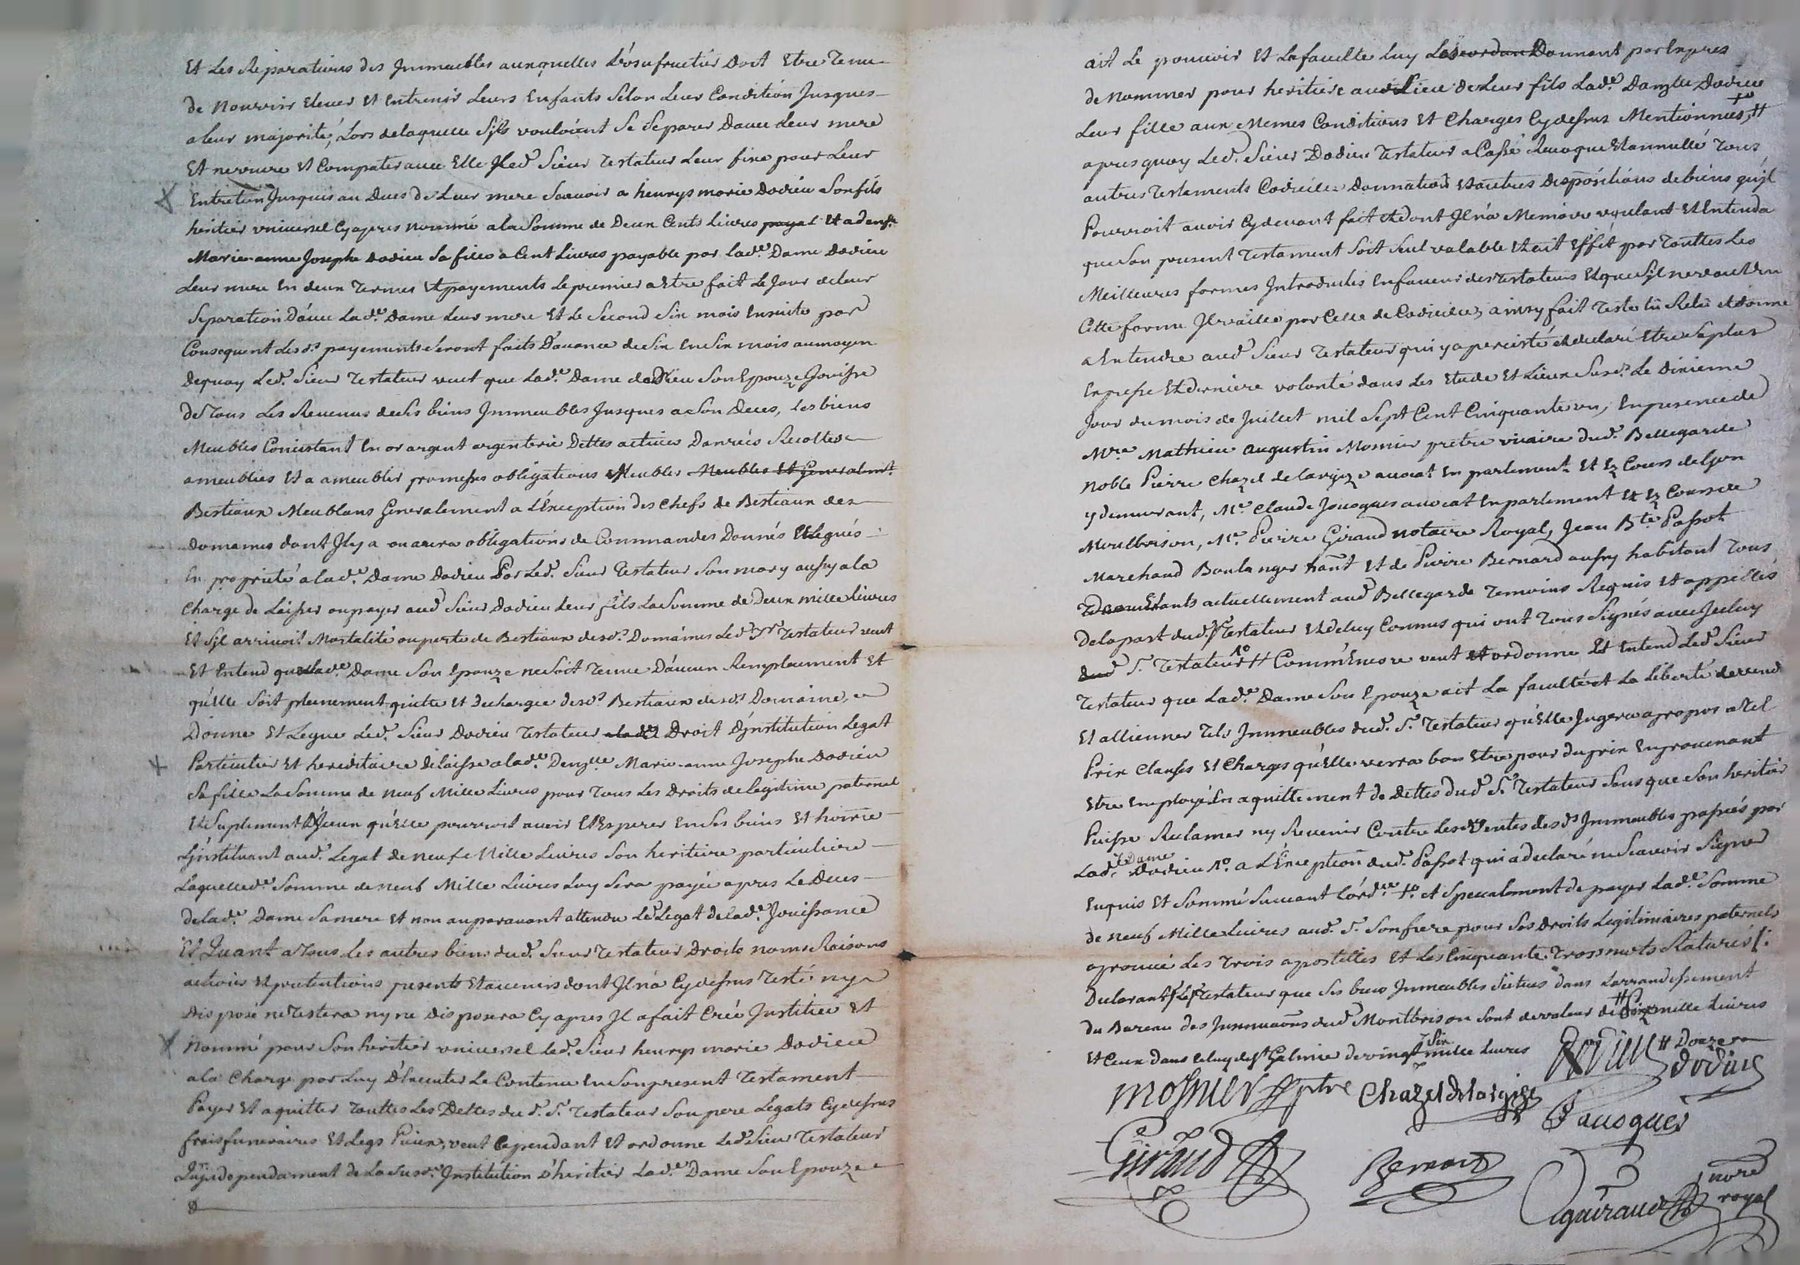 Et Les Reparations des Immeubles auxquelles L'usufructier Doit Etre Tenu
de Nourrir Elever Et Entrenir Leurs Enfants Selon Leur Condition Jusques
a leur majorité, Lors de laquelle S'ils vouloient Se Separer Davec Leur mere
Et ne vivre Et Compater avec Elle Led. Sieur Testateur Leur fixe pour Leur
Entretien Jusques au Deces de Leur mere Scavoir a henrys marie Dodieu Son fils
héritier universel Cy apres nommé a la Somme de Deux Cents Livres payal Et a
Marie anne Josephe Dodieu Sa fille a Cent Livres payable par Lad.e Dame Dodieu
Leur mere En deux Termes Et payements Le premier a Etre fait Le Jour de leur
Separation D'avec Lad.e Dame Leur mere Et Le Second Six mois Ensuite par
Consequent Les d.s payements Seront faits D'avance de Six En Six mois au moyen
Dequoy Led. Sieur Testateur veut que Lad.e Dame dodieu Son Epouze Jouisse
de Tous Les Revenus de Ses biens Immeubles Jusques a Son Deces, Les biens
Meubles Concistant En or argent argenterie Dettes actives Danrées Recoltes
ameublies Et a ameublir promesses obligations Meubles Meubles Et Generalmt.
Bestiaux Meublans Generalement a L'Exception des Chefs de Bestiaux des
Domaines dont Il y a ou aura obligations de Commandes Donnés Et Legués
En propriété a lad.e Dame Dodieu Par Led. Sieur Testateur Son mary aussy a la
Charge de Laisser ou payer aud. Sieur Dodieu Leur fils La Somme de Deux mille Livres
Et S'il arrivoit Mortalité ou perte de Bestiaux desd. Domaines Le d. Sr. Testateur veut
Et Entend que lad.e Dame Son Epouze ne Soit Tenue D'aucun Remplacement Et
qu'elle Soit pleinement quitte Et dechargée desd. Bestiaux desd. Domaine,
Donne Et Legue Led. Sieur Dodieu Testateur a lad.e Droit D'institution Legat
Particulier Et hereditaire delaisse a lad.e Demzlle Marie anne Josephe Dodieu
Sa fille La Somme de Neuf Mille Livres pour Tous Les Droits de Legitime paternel
Et Suplement D'jceux qu'elle pourroit avoir Et Esperer En Ses biens Et hoirie
L'instituant aud. Legat de neuf Mille Livres Son heritiere particuliere
Laquelle d. Somme de neuf Mille Livres Luy Sera payée apres Le Deces
de lad.e Dame Sa mere Et non auparavant attendu Le Legat de lad.e Jouissance
Et Quant a Tous Les autres biens dud. Sieur Testateur Droits noms Raisons
actions Et pretentions presents Et avenirs dont Il n'a Cy dessus Testé ny
Disposé ne Testera ny ne Disposera Cy apres Il a fait Créé Institué Et
Nommé pour Son heritier universel Led. Sieur henrys marie Dodieu
a la Charge par Luy D'Executer Le Contenu En Son present Testament
Payer Et aquitter Touttes Les Dettes dud. S. Testateur Son pere Legats Cy dessus
frais funeraires Et Legs Pieux, veut Cependant Et ordonne Led. Sieur Testateur
Independament de La Susd.e Institution D'heritier Lad.e Dame Son Epouze
ait Le pouvoir Et La faculte Luy Donnant par Expres
de Nommer pour heritiere au Lieu de Leur fils Lad.e Damzlle Dodieu
Leur fille aux Memes Conditions Et Charges Cy dessus Mentionnées,
apres quoy Led. Sieur Dodieu Testateur a Cassé Revoque Et annullé Tous
autres Testaments Codiciles Donnations Et autres Dispositions de biens qu'jl
Pourroit avoir Cy devant fait Et dont Il n'a Memoire voulant Et Entenda
que Son present Testament Soit Seul valable Et ait Effét par Touttes Les
Meilleures formes Introduites En faveur des Testateurs Et que S'il ne vaut En
Cette forme Il vaille par Celle de Codicile, ainsy fait Testé lû Relû Et donné
a Entendre aud. Sieur Testateur qui y a percisté Et declaré Etre Sa plus
Expresse Et derniere volonté dans Les Etude Et Lieux Susd. Le dixieme
Jour du mois de Juillet mil Sept Cent Cinquante un, En presence de
Mre. Mathieu augustin Mosnier prêtre vicaire dud. Bellegarde
Noble Pierre Chazel de Largize avocat En parlement Et Ez Cours de Lyon
y demeurant, Me Claude Jacoques avocat En parlement Et Ez Cours de
Montbrison, Me. Pierre Giraud notaire Royal, Jean Bte Passot
Marchand Boulanger Et de Pierre Bernard aussy habitant Tous
actuellement aud. Bellegarde Temoins Requis Et appellés
de la part dud. Sr Testateur Et de luy Connus qui ont Tous Signés avec Jceluy
dud. S. Testateur # Comm'Encore veut Et ordonne Et Entend Led. Sieur
Testateur que Lad.e Dame Son Epouze ait La faculté Et La Liberté de vendre
Et allienner Tels Immeubles dud. S. Testateur qu'Elle Jugera apropos a Tel
Prix Clauses Et Charges qu'Elle verra bon Etre pour du prix En provenant
Etre Employé En aquittement de Dettes dud. S. Testateur Sans que Son heritier
Puisse Reclamer ny Revenir Contre Les Ventes des d.s Immeubles passées par
Lad.e Dame Dodieu a L'Exception dud. Passot qui a declaré ne Scavoir Signer
Enquis Et Sommé Suivant L'ordce. Et Specialement de payer Lad.e Somme
de neuf Mille Livres aud. S. Son frere pour Ses Droits Legitimaires paternels
aprouvé Les Trois apostilles Et Les Cinquante Trois mots Raturés
Declarant Led. Sr Testateur que Ses biens Immeubles Scitués dans L'arrondissement
du Bureau des Insinuaons dud. Montbrison Sont de valeur de mille Livres
Et Ceux dans Celuy de St Galmier de vingt Six mille Livres # Douze
Dodieu dodieu
mosnier ptre Chazel de largize
Jacoques
Giraud Bernard
Guiraud nore royal